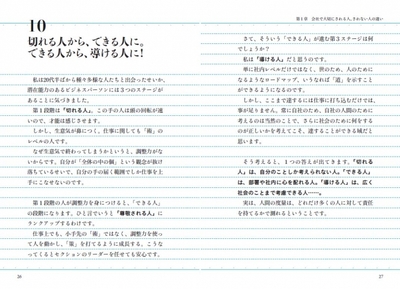 10
切れる人から、できる人に。
できる人から、導ける人に!
私は20代半ばから種々多様な人たちと出会ったせいか、
潜在能力のあるビジネスパーソンには3つのステージが
あることに気づきました。
第1段階は「切れる人」。この手の人は頭の回転が速い
ので、才能は感じさせます。
しかし、生意気が鼻につく、仕事に関しても「術」の
レベルの人です。
なぜ生意気で終わってしまうかというと、調整力がな
いからです。自分が「全体の中の個」という観念が抜け
落ちているせいで、自分の手の届く範囲でしか仕事を上
手にこなせないのです。
第1段階の人が調整力を身につけると、「できる人」
の段階になります。ひと言でいうと「尊敬される人」に
ランクアップするわけです。
仕事上でも、小手先の「術」ではなく、調整力を使っ
て人を動かし、「策」を打てるように成長する。こうな
ってくるとセクションのリーダーを任せても安心です。
26
第1章 会社で大切にされる人、されない人の違い
さて、そういう「できる人」が進む第3ステージは何
でしょうか?
私は「導ける人」だと思うのです。
単に社内レベルだけではなく、世のため、人のために
なるようなロードマップ、いうなれば「道」を示すこと
ができるようになるのです。
しかし、ここまで達するには仕事に打ち込むだけでは、
事が足りません。常に自社のため、自社の人間のために
考えるのは当然のことで、さらに社会のために何をする
のが正しいかを考えてこそ、達することができる域だと
思います。
そう考えると、1つの答えが出てきます。「切れる
人」は、自分のことしか考えられない人。「できる人」
は、部署や社内に心を配れる人。「導ける人」は、広く
社会のことまで考慮できる人……。
実は、人間の度量は、どれだけ多くの人に対して責任
を持てるかで測れるということです。
27